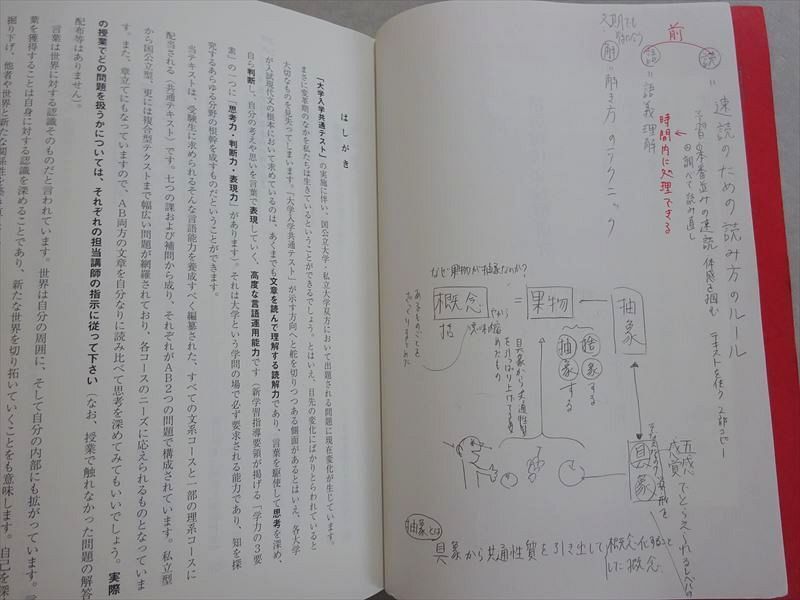 速読のための読み方のルール
読=
予習→本番並みの速読 体感を掴む
調べて読み直し
テキストを使う 2部コピー
前
時間内に処理できる
語=語義理解
解=解き方のテクニック
抽象
果物
=
概念
なぜ果物が抽象なのか?
捨象する
抽象する
具象から共通性質
を引っぱり上げてき
めたもの
具象
五感でとらえられるレベルの
抽象とは
具象から共通性質を引き出して概念化すること
した概念
はしがき
「大学入学共通テスト」の実施に伴い、国公立大学・私立大学双方において出題される問題に現在変化が生じています。
まさに変革期のなかを私たちは生きているということができるでしょう。とはいえ、目先の変化にばかりとらわれていると
大切なものを見失ってしまいます。「大学入学共通テスト」が示す方向へと舵を切りつつある側面があるとはいえ、各大学
が入試現代文の根本において求めているのは、あくまでも文章を読んで理解する読解力であり、言葉を駆使して思考を深め、
自ら判断し、自分の考えや思いを言葉で表現していく、高度な言語運用能力です(新学習指導要領が掲げる「学力の3要
素」の一つに「思考力・判断力・表現力」があります)。それは大学という学問の場で必ず要求される能力であり、知を探
究するあらゆる分野の根幹を成すものだということができます。
当テキストは、受験生に求められるそんな言語能力を養成すべく編纂された、すべての文系コースと一部の理系コースに
配当される〈共通テキスト〉です。七つの課および補問から成り、それぞれがAB2つの問題で構成されています。私立型
から国公立型、更には複合型テクストまで幅広い問題が網羅されており、各コースのニーズに応えられるものとなっていま
す。また、章立てにもなっていますので、AB両方の文章を自分なりに読み比べて思考を深めてみてもいいでしょう。実際
の授業でどの問題を扱うかについては、それぞれの担当講師の指示に従って下さい(なお、授業で触れなかった問題の解答
配布等はありません)。
言葉は世界に対する認識そのものだと言われています。世界は自分の周囲に、そして自分の内部にも拡がっています。言
葉を獲得することは自身に対する認識を深めることであり、新たな世界を切り拓いていくことをも意味します。自己を深
掘り下げ、他者や世界と新たな関係性を築き